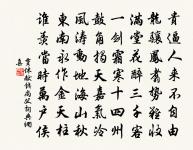 貴逼人來不自由
龍驤鳳翥勢難收
滿堂花醉三千客
一劍霜寒十四州
鼓角揭天嘉氣冷
風濤動地海山秋
東南永作金天柱
誰羨當時萬戶侯
貫休獻錢尚父詞典網
集